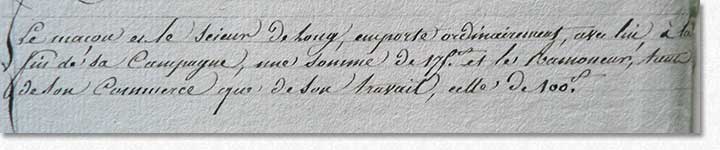 Le maçon et le scieur de long, emporte ordinairement, avec lui, à la
fin de sa Campagne, une somme de 175.f et le Ramoneur, tant
de son Commerce que de son travail, celle de 100.f